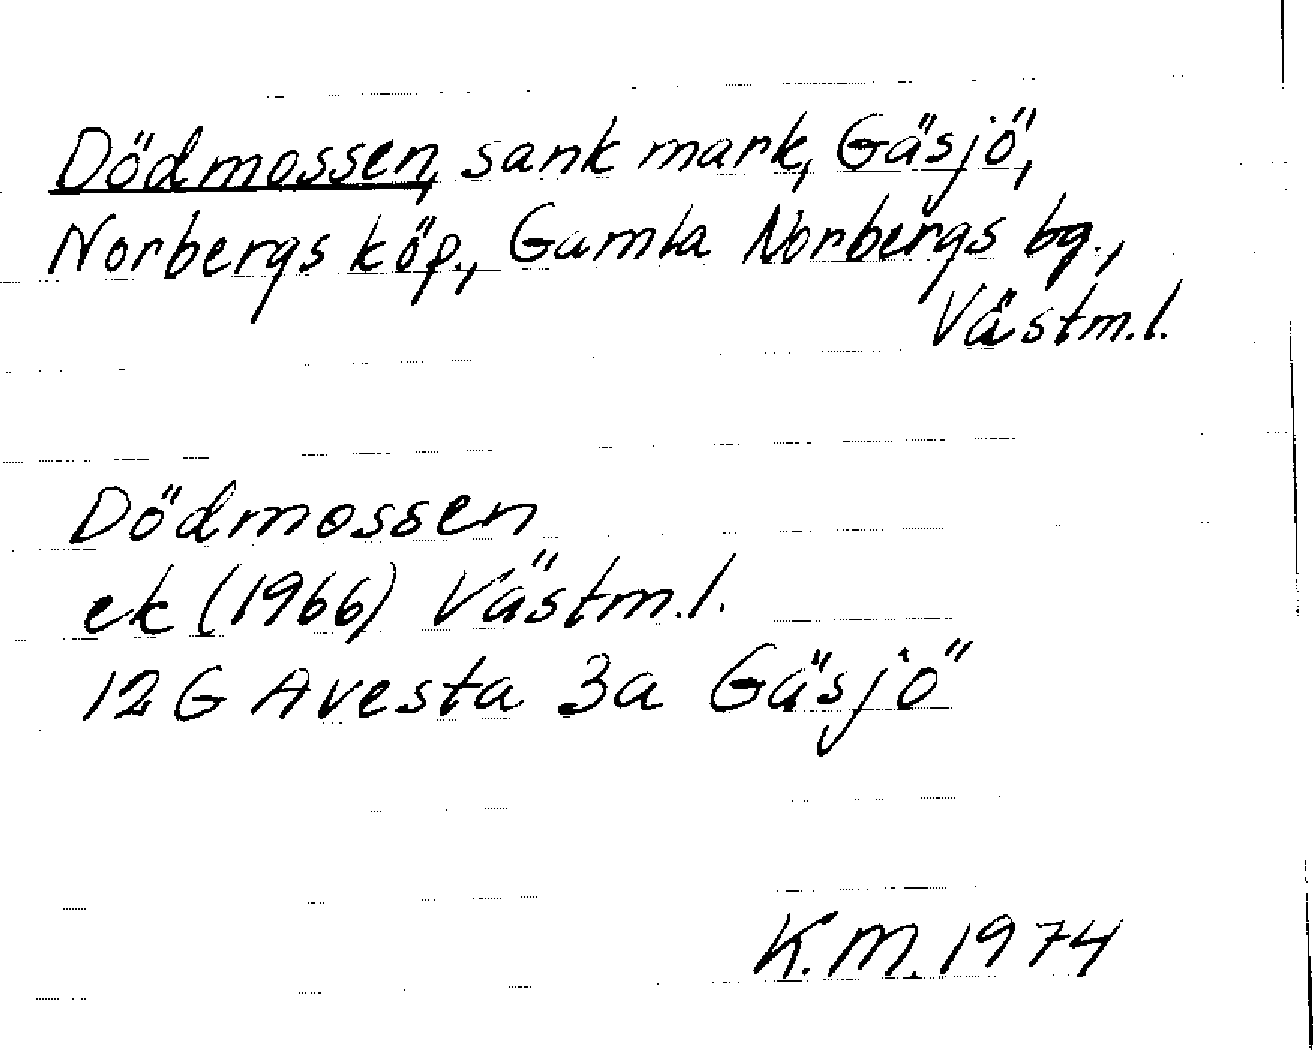 Dödmossen, sank mark, Gäsjö,
Norbergs köp., Gamla Norbergs bg.,
Västm.l.
Dödmossen
ek (1966) Västm.l.
12 G Avesta 3a Gäsjö
K.M. 1974